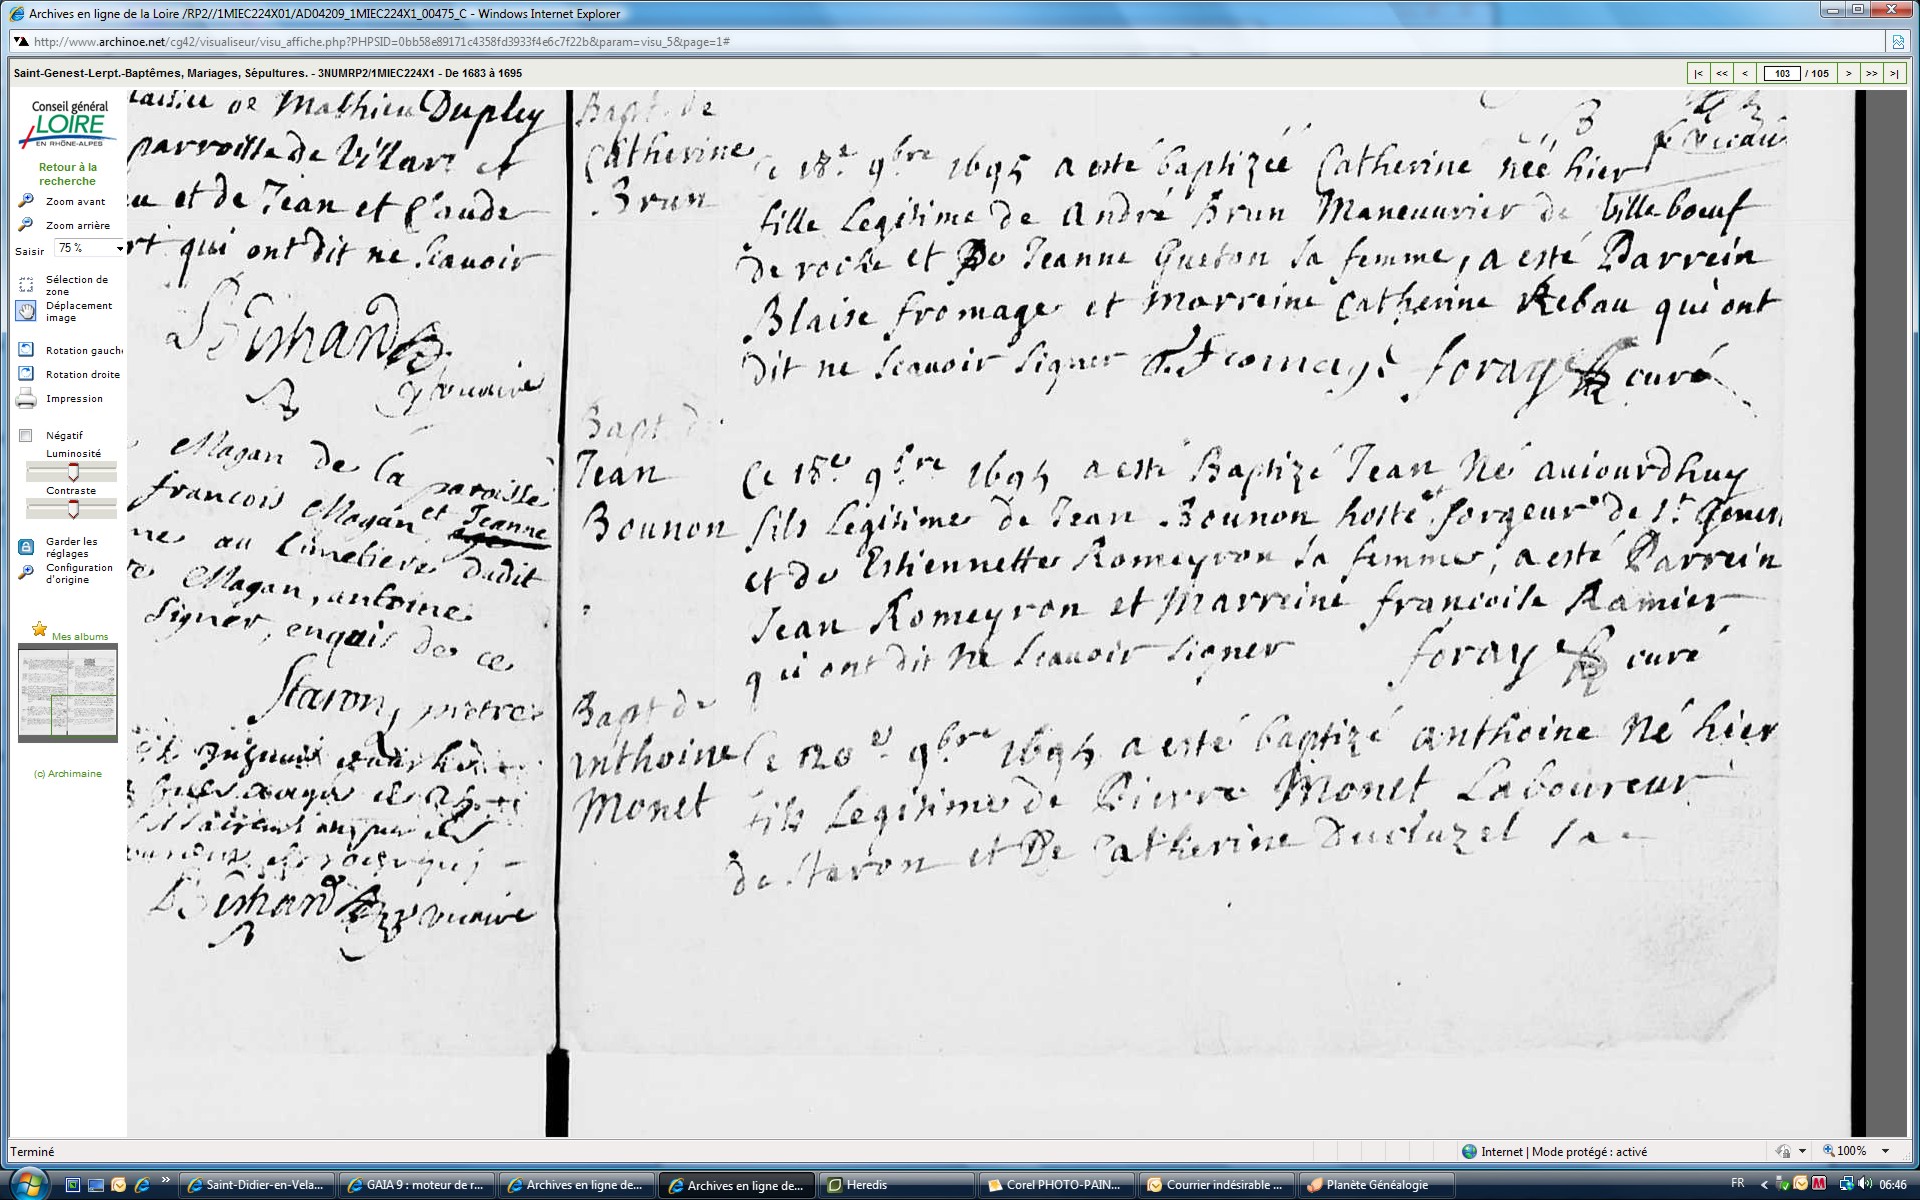 Archives en ligne de la Loire /RP2//1MIEC224X01/AD04209_1MIEC224X1_00475_C - Windows Internet Explorer
http://www.archinoe.net/cg42/visualiseur/visu_affiche.php?PHPSID=0bb58e89171c4358fd3933f4e6c7f22b&param=visu_5&page=1#
Saint-Genest-Lerpt.-Baptêmes, Mariages, Sépultures. - 3NUMRP2/1MIEC224X1 - De 1683 à 1695
|< << < 103 / 105 > >> >|
Conseil général
LOIRE
EN RHÔNE-ALPES
Retour à la
recherche
Zoom avant
Zoom arrière
Saisir 75 %
Sélection de
zone
Déplacement
image
Rotation gauche
Rotation droite
Impression
Négatif
Luminosité
Contraste
Garder les
réglages
Configuration
d'origine
Mes albums
(c) Archimaine
de Mathieu Dupley
parroisse de Villars et
et de Jean et Claude
qui ont dit ne scavoir
Magan de la paroisse
francois Magan et Jeanne
au Cimetiere dudit
Magan, antoine
signer, enquis de ce
Staron, prêtre
vicaire
Bapt. de
Catherine
Brun
Ce 18e 9bre 1695 a esté baptizéé Catherine néé hier
fille Legitime de André Brun Maneuvrier de Villeboeuf
de roche et De Jeanne Gueton sa femme, a esté Parrein
Blaise fromage et Marreine Catherine Rebau qui ont
dit ne scavoir signer Fromage foray curé
Bapt. de
Jean
Bounon
Ce 18e 9bre 1695 a esté Baptizé Jean Né aujourdhuy
fils Legitime de Jean Bounon hoste forgeur de St. Genest
et de Estiennette Romeyron sa femme, a esté Parrein
Jean Romeyron et Marreine francoise Ramier
qui ont dit Ne scavoir signer foray curé
Bapt de
Anthoine
Monet
Ce 20e 9bre 1695 a esté baptizé anthoine Né hier
fils Legitime de Pierre Monet Laboureur
de Staron et De Catherine Ducluzel sa
Terminé
Internet | Mode protégé : activé
100%
Saint-Didier-en-Vela...
GAIA 9 : moteur de r...
Archives en ligne de...
Archives en ligne de...
Heredis
Corel PHOTO-PAIN...
Courrier indésirable ...
Planète Généalogie
FR
06:46